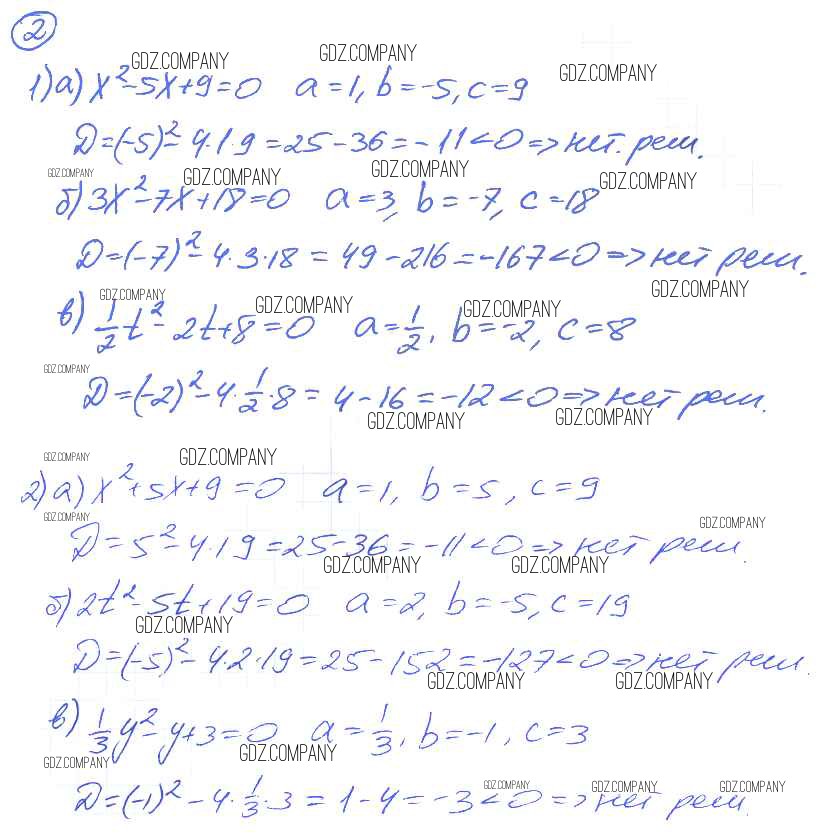 2
GDZ.COMPANY GDZ.COMPANY GDZ.COMPANY
1) а) x²-5x+9=0 a=1, b=-5, c=9
D=(-5)²-4·1·9=25-36=-11<0=>нет. реш.
GDZ.COMPANY GDZ.COMPANY GDZ.COMPANY GDZ.COMPANY
б) 3x²-7x+18=0 a=3, b=-7, c=18
D=(-7)²-4·3·18=49-216=-167<0=>нет реш.
GDZ.COMPANY GDZ.COMPANY GDZ.COMPANY GDZ.COMPANY
в) 1/2 t²-2t+8=0 a=1/2, b=-2, c=8
GDZ.COMPANY
D=(-2)²-4·1/2·8=4-16=-12<0=>нет реш.
GDZ.COMPANY GDZ.COMPANY
GDZ.COMPANY GDZ.COMPANY
2) а) x²+5x+9=0 a=1, b=5, c=9
GDZ.COMPANY GDZ.COMPANY
D=5²-4·1·9=25-36=-11<0=>нет реш.
GDZ.COMPANY GDZ.COMPANY
б) 2t²-5t+19=0 a=2, b=-5, c=19
GDZ.COMPANY
D=(-5)²-4·2·19=25-152=-127<0=>нет реш.
GDZ.COMPANY GDZ.COMPANY
в) 1/3 y²-y+3=0 a=1/3, b=-1, c=3
GDZ.COMPANY GDZ.COMPANY
GDZ.COMPANY GDZ.COMPANY GDZ.COMPANY
D=(-1)²-4·1/3·3=1-4=-3<0=>нет реш.